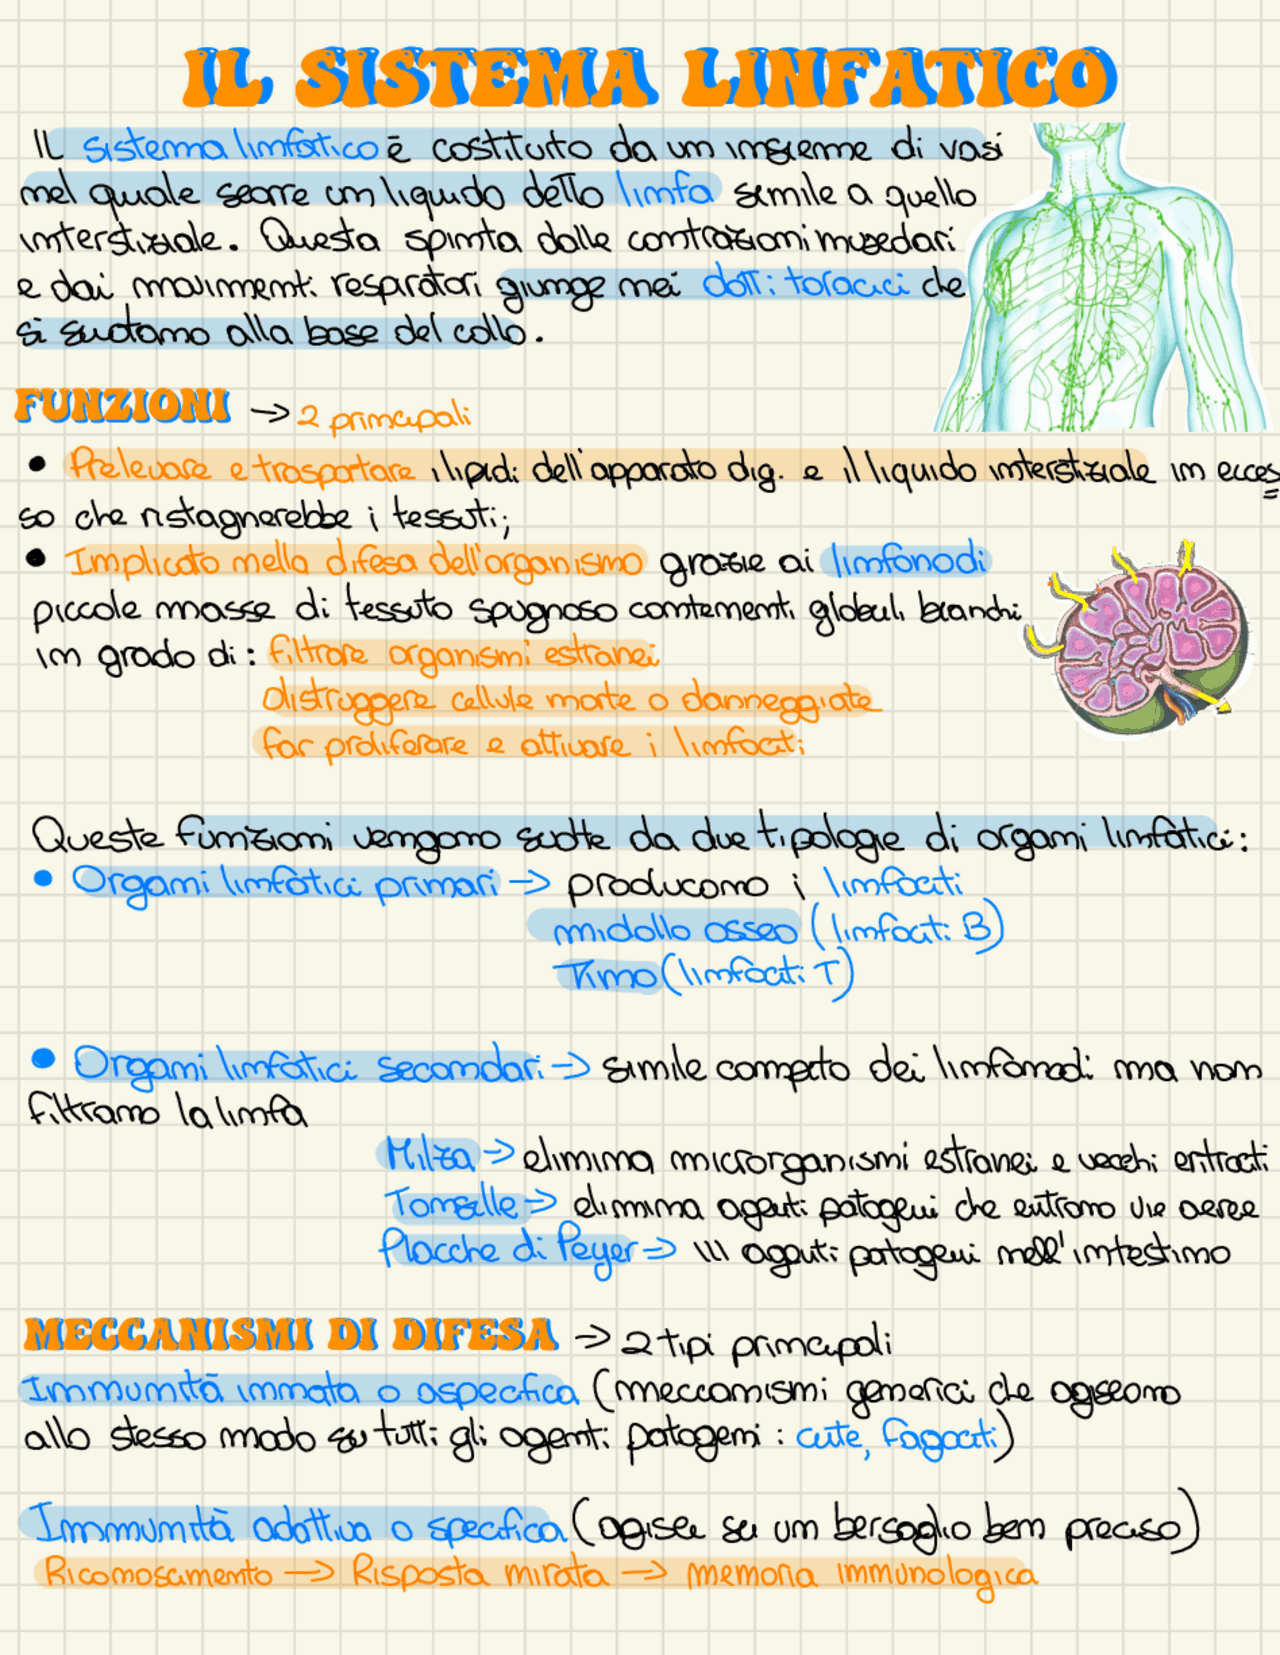 IL SISTEMA LINFATICO
Il sistema linfatico è costituito da un insieme di vasi
nel quale scorre un liquido detto linfa simile a quello
interstiziale. Questa spinta dalle contrazioni muscolari
e dai movimenti respiratori giunge nei dotti toracici che
si svuotano alla base del collo.
FUNZIONI → 2 principali
• Prelevare e trasportare i lipidi dell'apparato dig. e il liquido interstiziale in ecces
so che ristagnerebbe i tessuti;
• Implicato nella difesa dell'organismo grazie ai linfonodi
piccole masse di tessuto spugnoso contenenti globuli bianchi
in grado di: filtrare organismi estranei
distruggere cellule morte o danneggiate
far proliferare e attivare i linfociti
Queste funzioni vengono svolte da due tipologie di organi linfatici:
• Organi linfatici primari → producono i linfociti
midollo osseo (linfociti B)
Timo (linfociti T)
• Organi linfatici secondari → simile compito dei linfonodi ma non
filtrano la linfa
Milza → elimina microrganismi estranei e vecchi eritrociti
Tonsille → elimina agenti patogeni che entrano vie aeree
Placche di Peyer → \\\ agenti patogeni nell'intestino
MECCANISMI DI DIFESA → 2 tipi principali
Immunità innata o aspecifica (meccanismi generici che agiscono
allo stesso modo su tutti gli agenti patogeni : cute, fagociti)
Immunità adattiva o specifica (agisce su un bersaglio ben preciso)
Riconoscimento → Risposta mirata → memoria immunologica